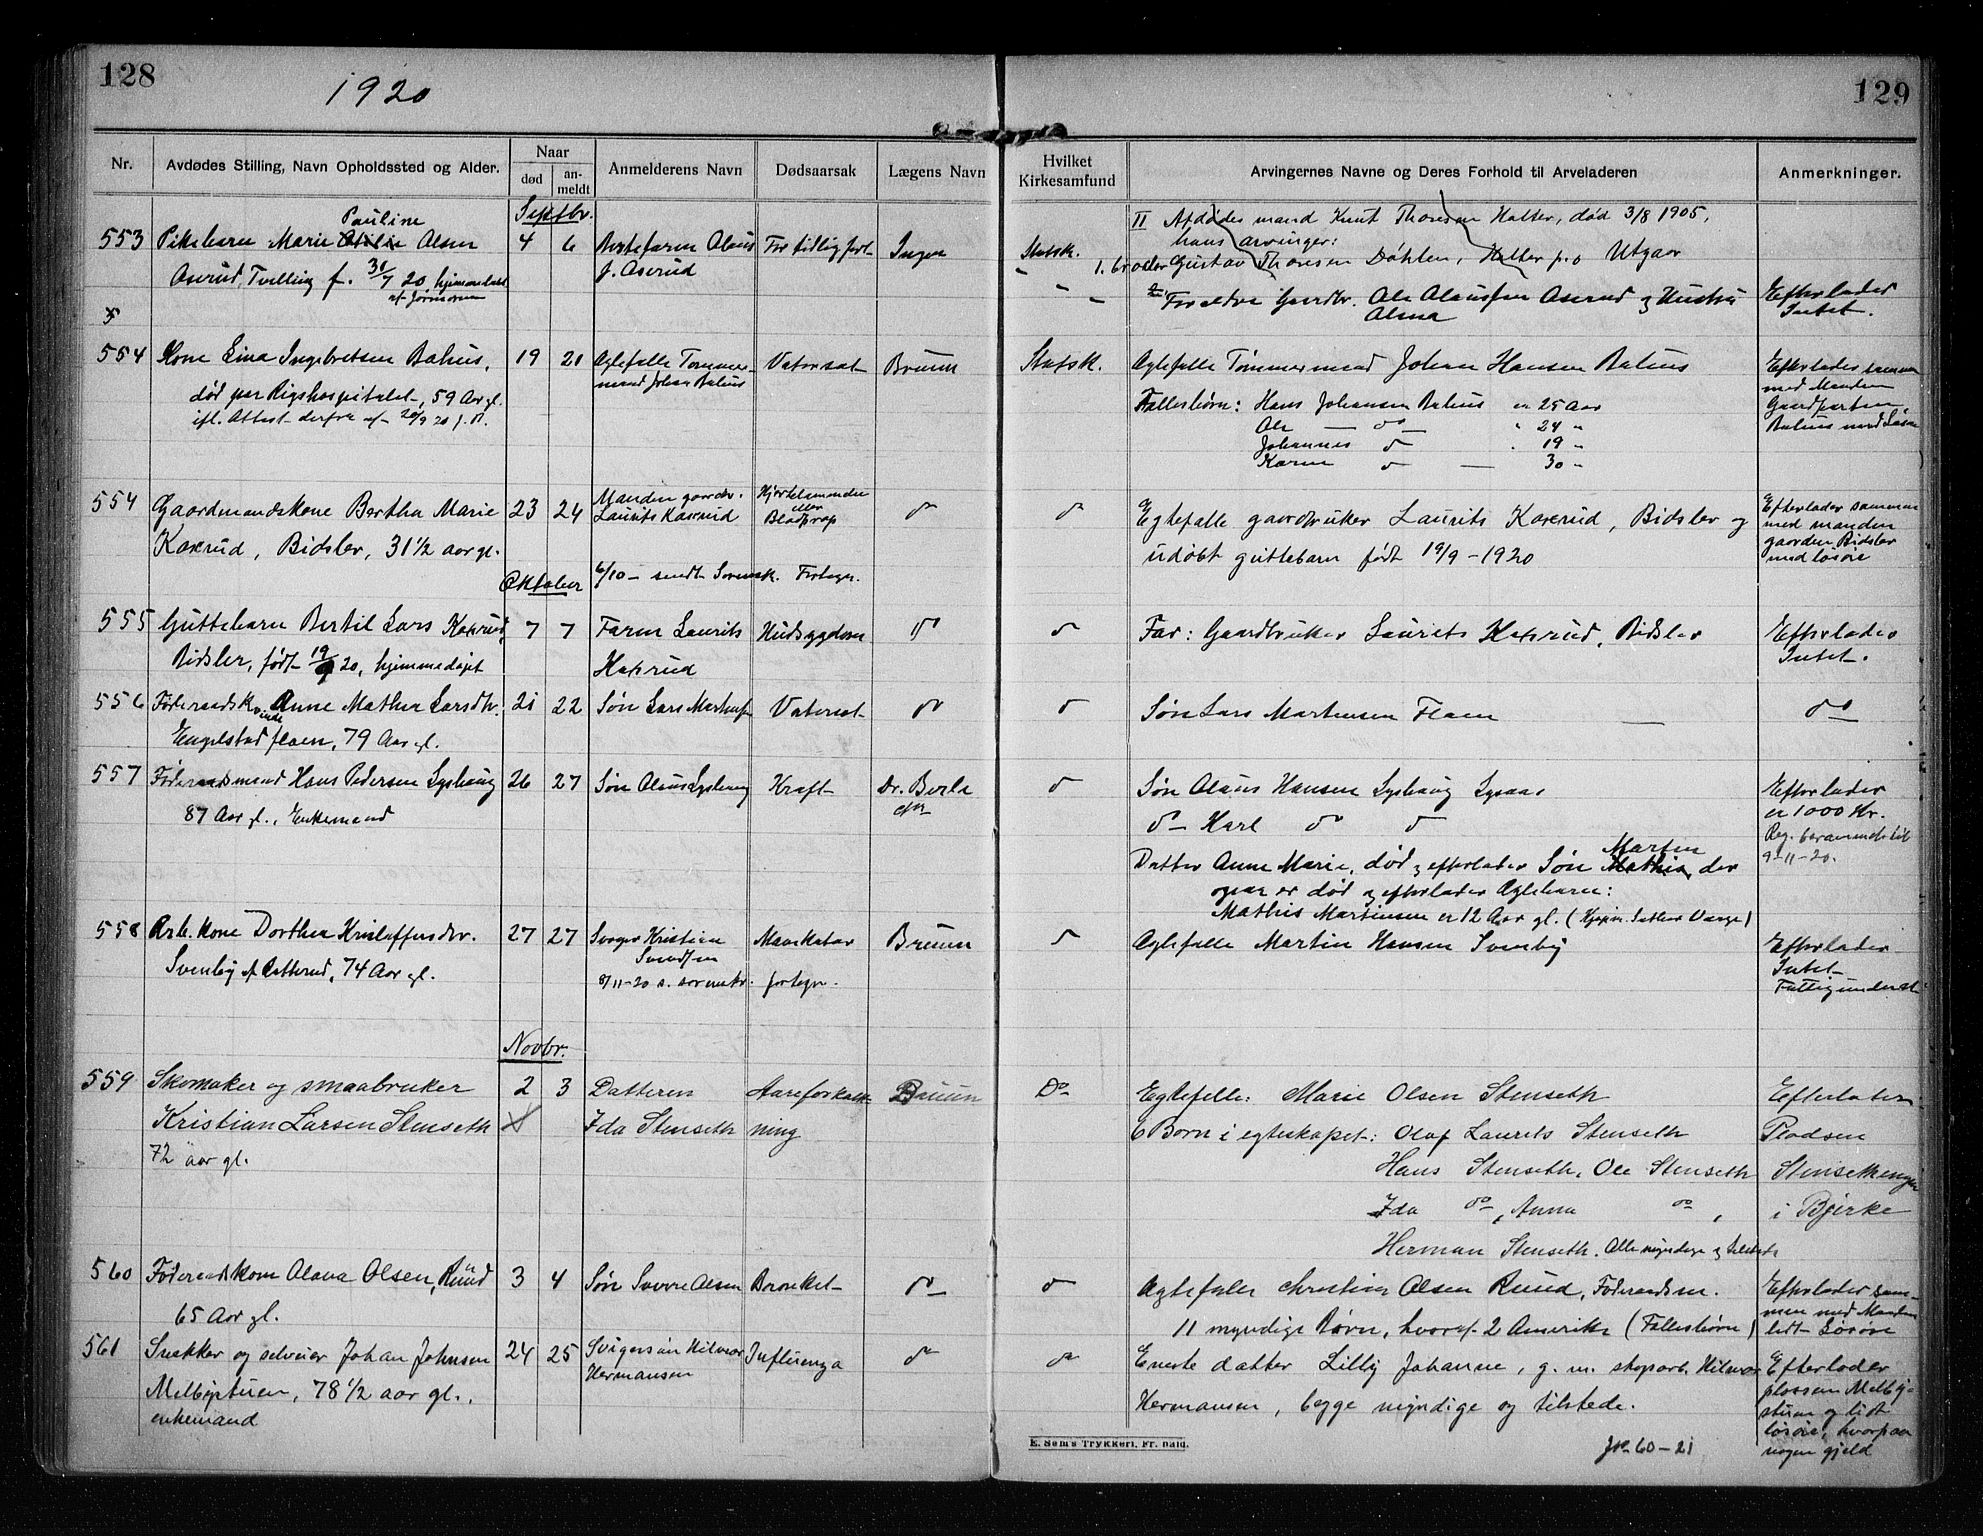 128
1920
129
Nr.
Avdødes Stilling, Navn Opholdssted og Alder.
Naar
død
an-
meldt
Anmelderens Navn
Dødsaarsak
Lægens Navn
Hvilket
Kirkesamfund
Arvingernes Navne og Deres Forhold til Arveladeren
Anmerkninger.
Septbr.
II Avdødes mand Knut Thoresen Halter, død 3/8 1905,
hans arvinger:
1. broder Gustav Thoresen Døhlen, Halter p.o Utgaar
Pauline
553 Pikebarn Marie Olsen 4 6 Olaus For tidlig født Ingen Statsk.
Aserud, Tvilling f. 31/7 20, hjemmedøbt
f. Aserud
af Jormoren
Forældre Gaardbr. Ole Olaussen Aserud og Hustru
Alma
Efterlader
Intet.
554 Kone Lina Ingebretsen Bahus, 19 21 Ægtefælle Tømmer- Vatersot Bruun Statsk. Ægtefælle Tømmermand Johan Hansen Bahus
død paa Rigshospitalet, 59 Aar gl.
mand Johan Bahus
ifl. Attest derfra af 20/9 20 f. P.
Fællesbørn: Hans Johansen Bahus er 25 Aar
Ole — do — " 24 "
Johannes do " 19 "
Karen do — 30 "
Efterlader sammen
med Manden
Gaardparten
Bahus med Løsøre
554 Gaardmandskone Bertha Marie 23 24 Manden gaardbr. Hjertelammelse do do
Laurits Koxrud
eller
Blodprop
Koxrud, Bidsler, 31 1/2 aar gl.
Egtefælle gaardbruker Laurits Koxrud, Bidsler og
udøbt guttebarn født 19/9 - 1920
Efterlader sammen
med manden
gaarden Bidsler
med løsøre
Oktober
6/10 - sendt Sorensk. Fortegn.
555 Guttebarn Bertil Lars Koxrud, 7 7 Faren Laurits Hudsygdom do do Far: Gaardbruker Laurits Koxrud, Bidsler Efterlader
Bidsler, født 19/9 20, hjemmedøpt
Koxrud
Intet.
556 Føderaadskvinde Anne Mathea Larsdtr. 21 22 Søn Lars Martinsen Vatersot do do Søn Lars Martinsen Flaen — do
Engelstadflaen, 79 Aar gl.
557 Føderaadsmand Hans Pedersen Lyshaug 26 27 Søn Olaus Lyshaug Kræft Dr. Berle do Søn Olaus Hansen Lyshaug
87 Aar gl., Enkemand
do — Karl do do
Efterlader
ca 1000 Kr.
Reg. berammet til
9-11-20.
Datter Anne Marie, død og efterlader Søn Martin der
ogsaa er død og efterlader Ægtebarn:
Mathis Martinsen er 12 Aar gl.
558 Arb. kone Dorthea Kristoffersdtr. 27 27 Svoger Kristian Mavekatar Bruun do Ægtefælle Martin Hansen Svenby
Svenby af Ratterud, 74 Aar gl.
8/11-20 s. sorenskr. fortegn.
Efterlader
Intet
Fattigunderst.
Novbr.
559 Skomaker og smaabruker 2 3 Datteren Aareforkalk- Bruun Do Egtefelle: Marie Olsen Stenseth Efterlater
Kristian Larsen Stenseth Ida Stenseth ning 6 Børn i egteskapet: Olaf Laurits Stenseth Pladsen
72 aar gl.
Hans Stenseth, Ole Stenseth Stensethengen
Ida do, Anna do, i Bjerke
Herman Stenseth. Alle myndige og tilstede
560 Føderaadskone Olava Olsen, Ruud 3 4 Søn Sverre Olsen Bronket do do Ægtefælle Christian Olsen Ruud, Føderaadsm.
65 Aar gl.
11 myndige Børn, hvoraf 2 Amerika (Fællesbørn)
Efterlader sam-
men med Manden
lidt Løsøre
561 Snekker og selveier Johan Johnsen 24 25 Svigersøn Hilmar Influenza do do Eneste datter Lilly Johanne, g. m. skoarb. Hilmar
Hermansen
Melbystuen, 78 1/2 aar gl.,
enkemand
Hermansen, begge myndige og tilstede.
Efterlader
plassen Melby-
stuen og lidt
løsøre, hvorpaa
nogen gjeld
E. Sem's Trykkeri, Fr. hald.
Jr. 60-21